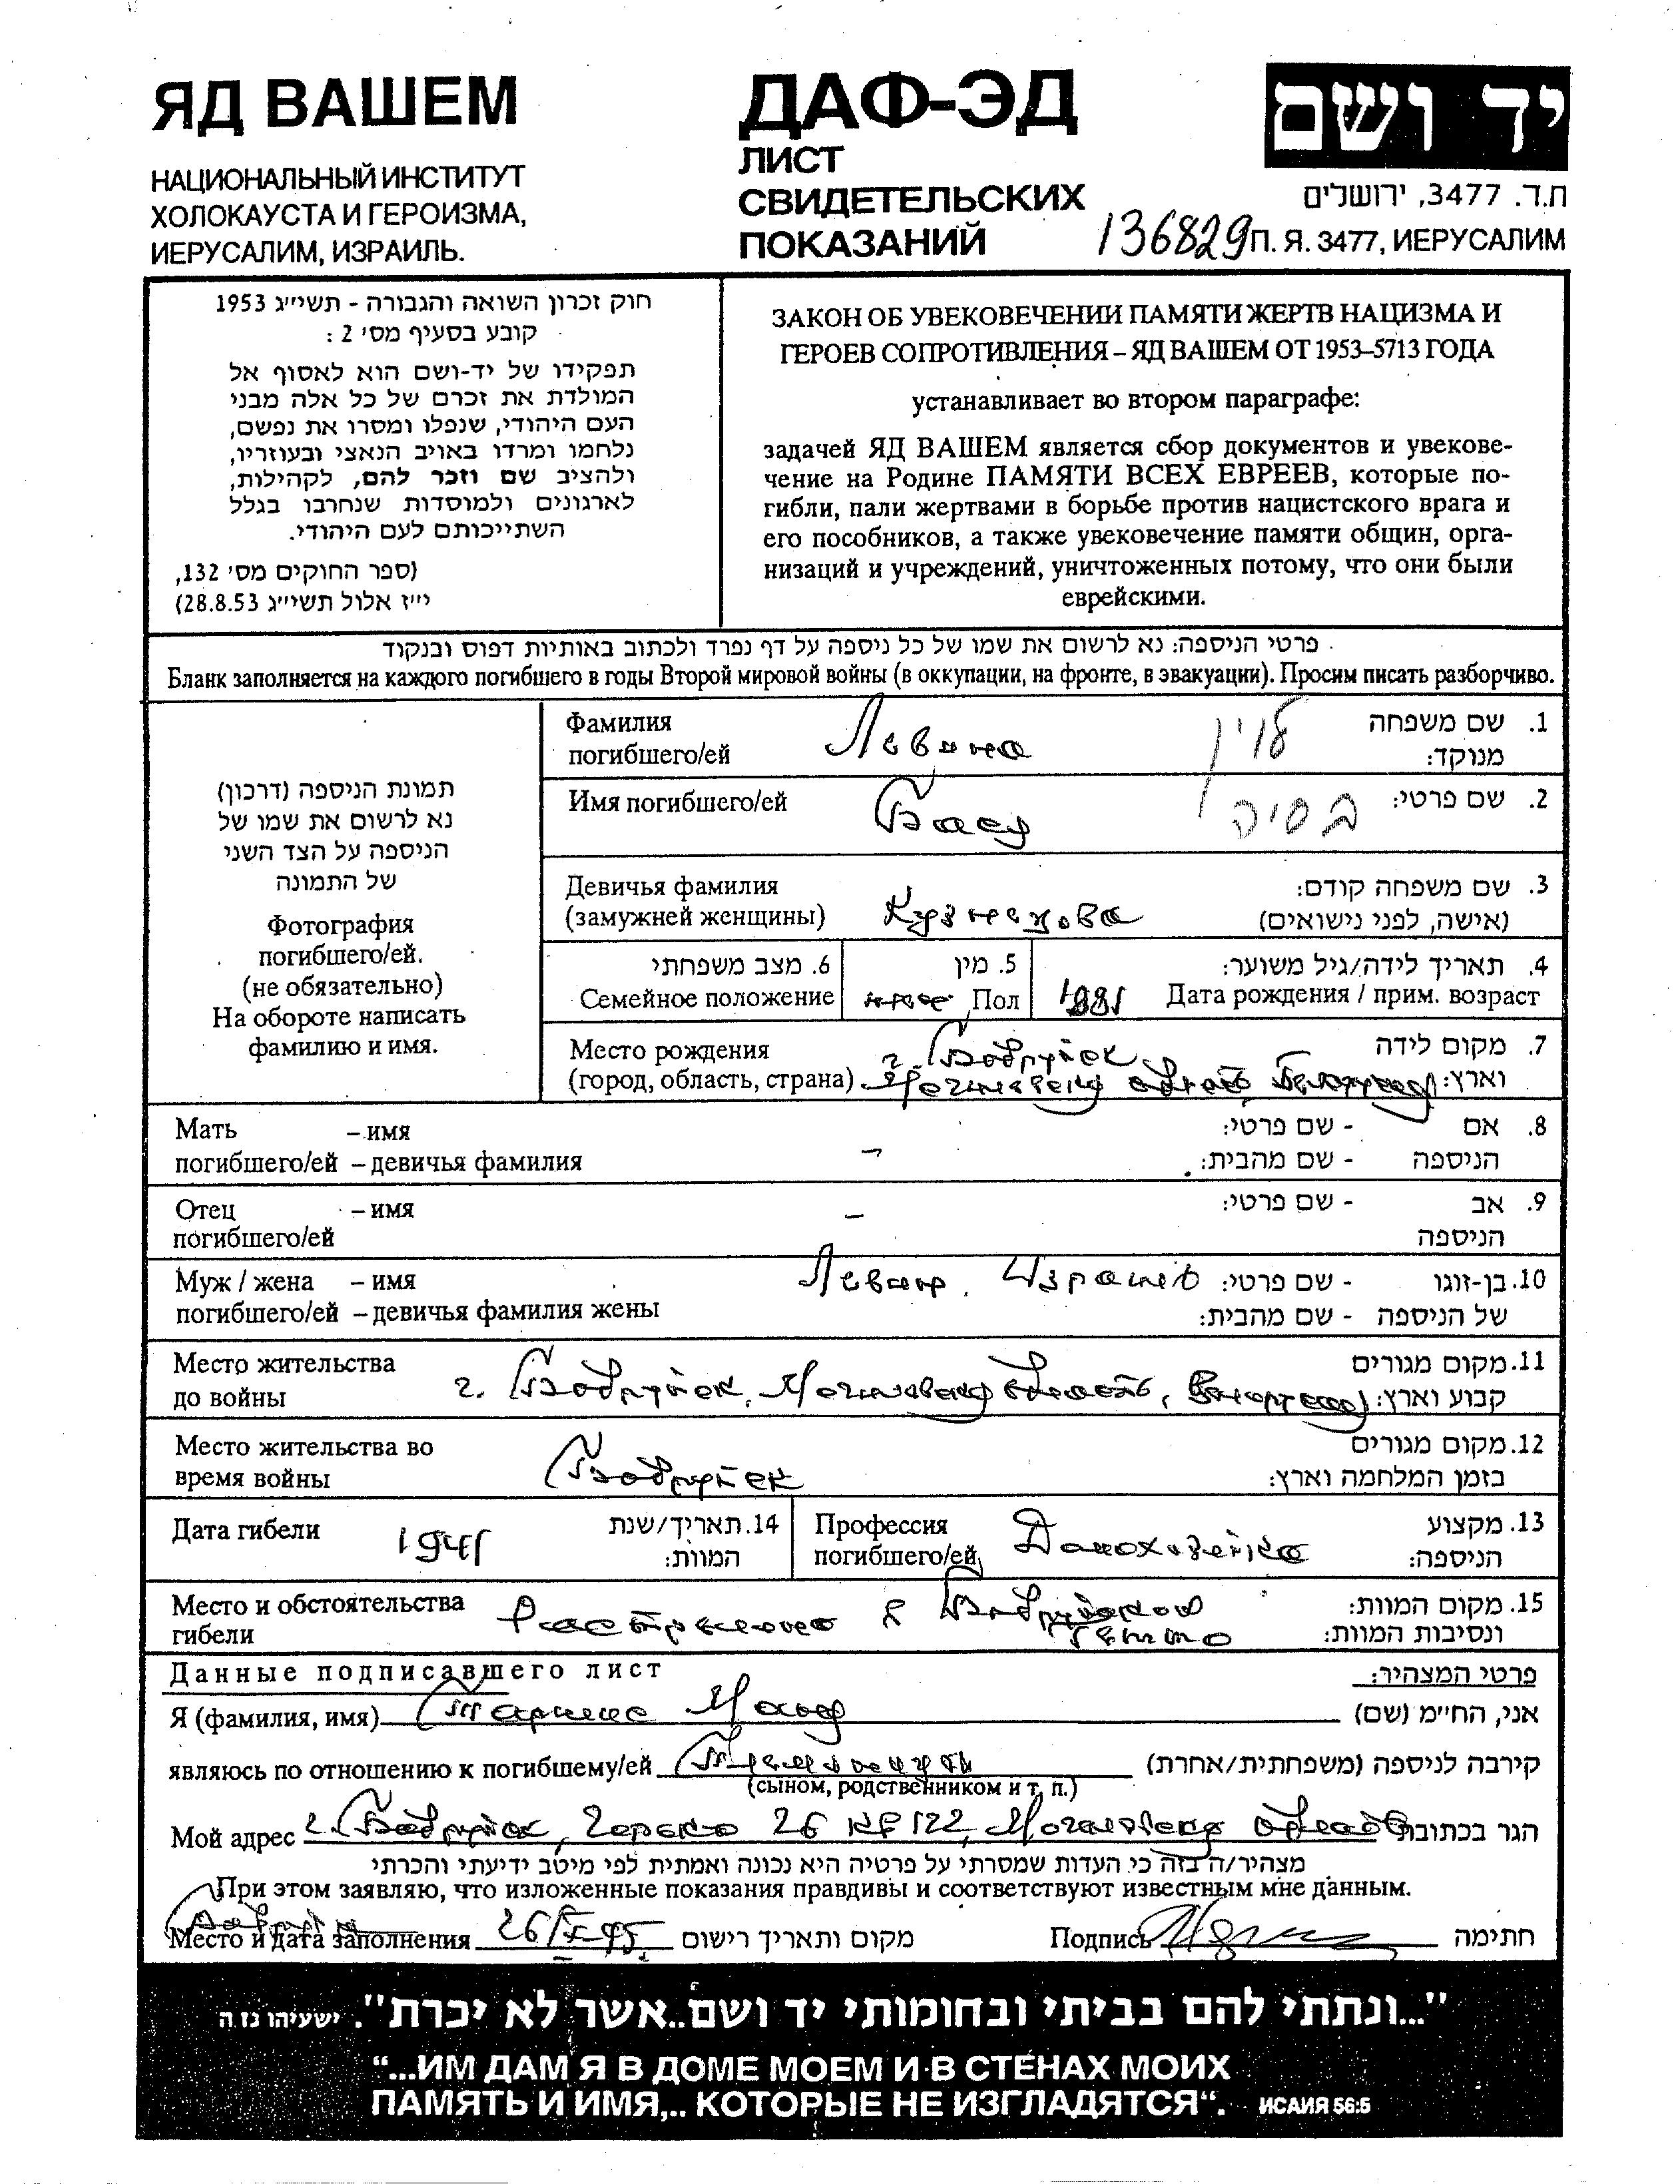 ЯД ВАШЕМ
НАЦИОНАЛЬНЫЙ ИНСТИТУТ
ХОЛОКАУСТА И ГЕРОИЗМА,
ИЕРУСАЛИМ, ИЗРАИЛЬ.
ДАФ-ЭД
ЛИСТ
СВИДЕТЕЛЬСКИХ
ПОКАЗАНИЙ
136829
יד ושם
ת.ד. 3477, ירושלים
П. Я. 3477, ИЕРУСАЛИМ
חוק זכרון השואה והגבורה - תשי״ג 1953
קובע בסעיף מס׳ 2 :
תפקידו של יד-ושם הוא לאסוף אל
המולדת את זכרם של כל אלה מבני
העם היהודי, שנפלו ומסרו את נפשם,
נלחמו ומרדו באויב הנאצי ובעוזריו,
ולהציב שם וזכר להם, לקהילות,
לארגונים ולמוסדות שנחרבו בגלל
השתייכותם לעם היהודי.
(ספר החוקים מס׳ 132,
י״ז אלול תשי״ג 28.8.53)
ЗАКОН ОБ УВЕКОВЕЧЕНИИ ПАМЯТИ ЖЕРТВ НАЦИЗМА И
ГЕРОЕВ СОПРОТИВЛЕНИЯ – ЯД ВАШЕМ ОТ 1953–5713 ГОДА
устанавливает во втором параграфе:
задачей ЯД ВАШЕМ является сбор документов и увекове-
чение на Родине ПАМЯТИ ВСЕХ ЕВРЕЕВ, которые по-
гибли, пали жертвами в борьбе против нацистского врага и
его пособников, а также увековечение памяти общин, орга-
низаций и учреждений, уничтоженных потому, что они были
еврейскими.
פרטי הניספה: נא לרשום את שמו של כל ניספה על דף נפרד ולכתוב באותיות דפוס ובנקוד
Бланк заполняется на каждого погибшего в годы Второй мировой войны (в оккупации, на фронте, в эвакуации). Просим писать разборчиво.
תמונת הניספה (דרכון)
נא לרשום את שמו של
הניספה על הצד השני
של התמונה
Фотография
погибшего/ей.
(не обязательно)
На обороте написать
фамилию и имя.
Фамилия
погибшего/ей
Левина
לוין
1. שם משפחה
מנוקד:
Имя погибшего/ей
Бася
בסיה
2. שם פרטי:
Девичья фамилия
(замужней женщины)
Кузнецова
3. שם משפחה קודם:
(אישה, לפני נישואים)
6. מצב משפחתי
Семейное положение
5. מין
Пол
4. תאריך לידה/גיל משוער:
1881 Дата рождения / прим. возраст
Место рождения
(город, область, страна)
г. Бобруйск
Могилевская область
7. מקום לידה
וארץ:
Мать – имя
погибшего/ей – девичья фамилия
–
8. אם - שם פרטי:
הניספה - שם מהבית:
Отец – имя
погибшего/ей
–
9. אב - שם פרטי:
הניספה
Муж / жена – имя
погибшего/ей – девичья фамилия жены
Левин, Израиль
10. בן-זוגו - שם פרטי:
של הניספה - שם מהבית:
Место жительства
до войны
г. Бобруйск, Могилевская область,
11. מקום מגורים
קבוע וארץ:
Место жительства во
время войны
Бобруйск
12. מקום מגורים
בזמן המלחמה וארץ:
Дата гибели
1941
14. תאריך/שנת
המוות:
Профессия
погибшего/ей
Домохозяйка
13. מקצוע
הניספה:
Место и обстоятельства
гибели
Расстреляна в Бобруйском
гетто
15. מקום המוות:
ונסיבות המוות:
Данные подписавшего лист
פרטי המצהיר:
Я (фамилия, имя)
אני, החי״מ (שם)
являюсь по отношению к погибшему/ей
קירבה לניספה (משפחתית/אחרת)
(сыном, родственником и т. п.)
Мой адрес г. Бобруйск, 26 кв 122, Могилевская
הגר בכתובת
מצהיר/ה בזה כי העדות שמסרתי על פרטיה היא נכונה ואמתית לפי מיטב ידיעתי והכרתי
При этом заявляю, что изложенные показания правдивы и соответствуют известным мне данным.
Место и дата заполнения
מקום ותאריך רישום
Подпись
חתימה
"...ונתתי להם בביתי ובחומותי יד ושם..אשר לא יכרת". ישעיהו נו ה
“...ИМ ДАМ Я В ДОМЕ МОЕМ И В СТЕНАХ МОИХ
ПАМЯТЬ И ИМЯ,.. КОТОРЫЕ НЕ ИЗГЛАДЯТСЯ“. ИСАИЯ 56:5